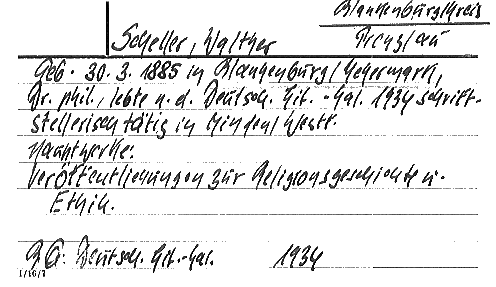 Blankenburg/Kreis
Prenzlau
Scheller, Walther
Geb. 30. 3. 1885 in Blankenburg/Uckermark,
Dr. phil., lebte n. d. Deutsch. Lit.-Kal. 1934 schrift-
stellerisch tätig in Minden/Westf.
Hauptwerke:
Veröffentlichungen zur Religionsgeschichte u.
Ethik.
Deutsch. Lit.-Kal. 1934